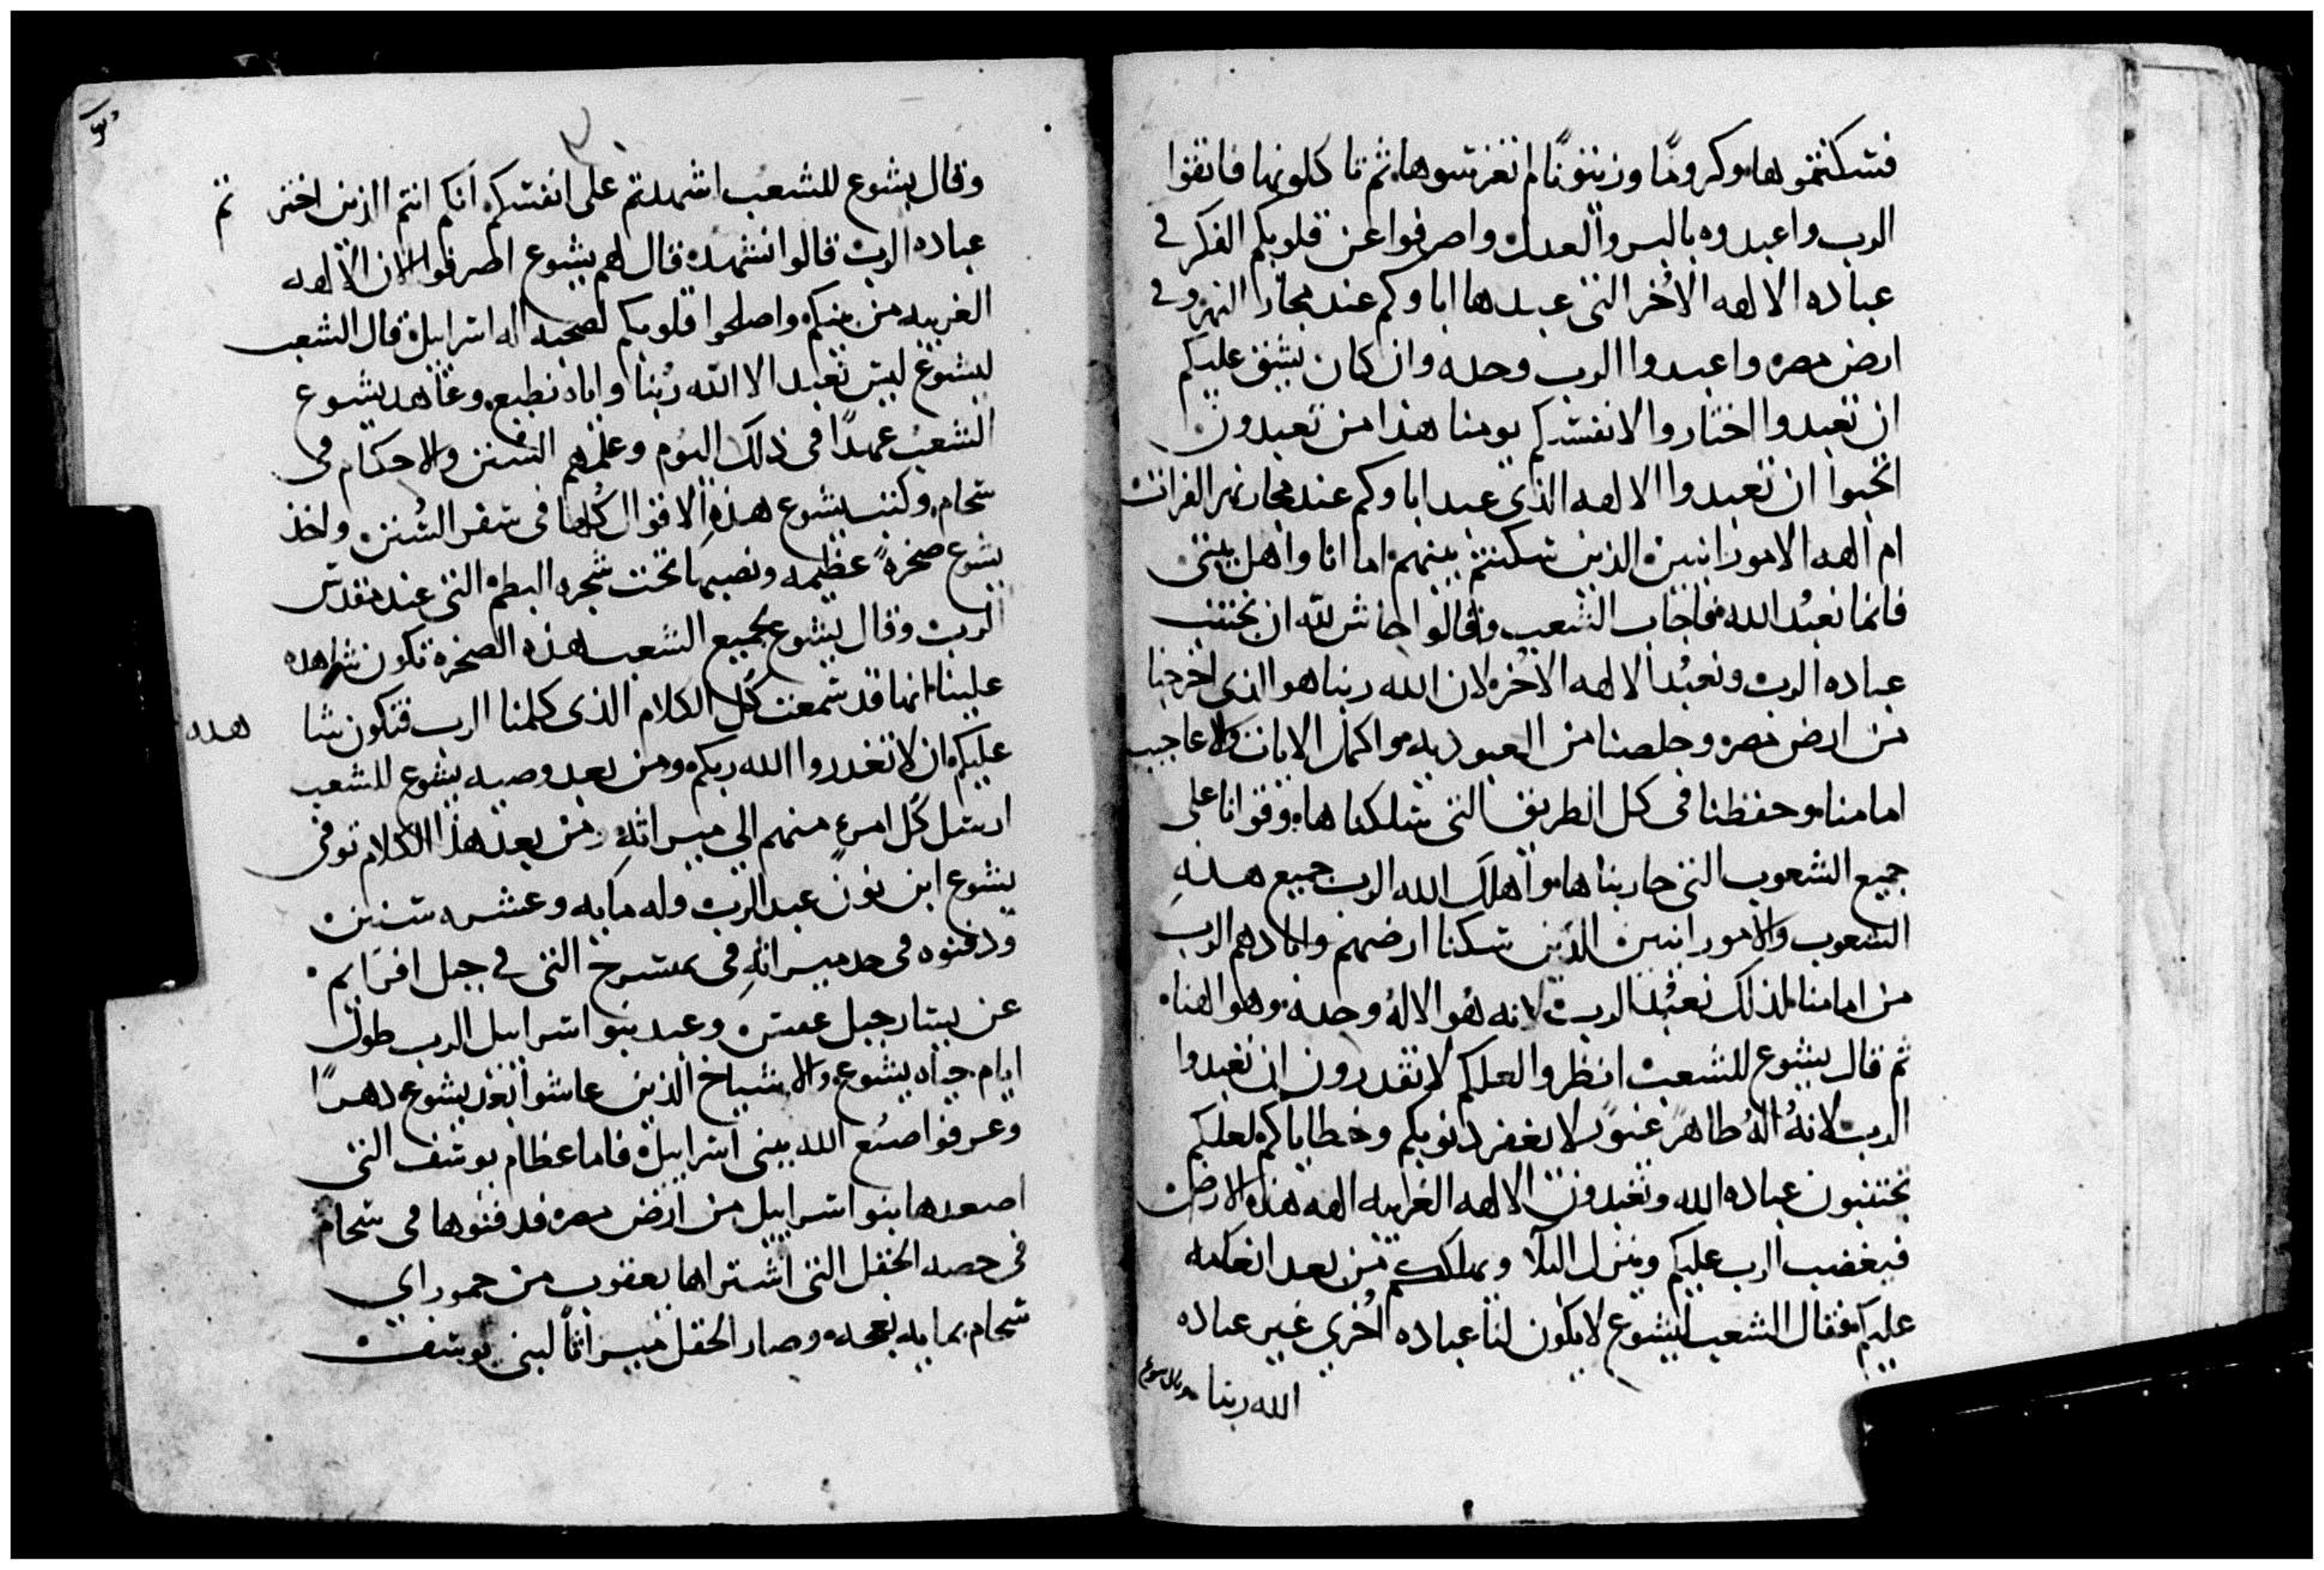 فسكنتموها وكروما وزيتونا لم تغرسوها ثم تاكلونها فاتقوا
الرب واعبدوه بالبر والعدل واصرفوا عن قلوبكم الفكر في
عباده الالهه الاخر التي عبدها اباوكم عند مجاز النهر وفي
ارض مصر واعبدوا الرب وحده وان كان يشق عليكم
ان تعبدوا اختاروا لانفسكم يومنا هذا من تعبدون
اتحبوا ان تعبدوا الالهه الذي عبد اباوكم عند مجاز نهر الفرات
ام الهه الامورانيين الذين سكنتم بينهم اما انا واهل بيتي
فانما نعبد الله فاجاب الشعب وقالوا حاش لله ان نجتنب
عباده الرب ونعبد الالهه الاخر لان الله ربنا هو الذي اخرجنا
من ارض مصر وخلصنا من العبوديه واكمل الايات والاعاجيب
امامنا وحفظنا في كل الطريق التي سلكناها وقوانا على
جميع الشعوب التي حاربناها واهلك الله الرب جميع هذه
الشعوب والامورانيين الذين سكنا ارضهم وابادهم الرب
من امامنا لذلك نعبد الرب لانه هو الاله وحده وهو الهنا
ثم قال يشوع للشعب انظروا لعلكم لا تقدرون ان تعبدوا
الرب لانه اله طاهر غيور لا يغفر ذنوبكم وخطاياكم لعلكم
تجتنبون عباده الله وتعبدون الالهه الغريبه الهه هذه الارض
فيغضب الرب عليكم وينزل البلا ويهلككم من بعد انعامه
عليكم فقال الشعب ليشوع لا يكون لنا عباده اخري غير عباده
الله ربنا
وقال يشوع للشعب اشهدتم على انفسكم انكم انتم الذين اختر تم
عباده الرب قالوا نشهد قال لهم يشوع اصرفوا الان الالهه
الغريبه من بينكم واصلحوا قلوبكم لصحبه اله اسراييل قال الشعب
ليشوع ليس نعبد الا الله ربنا واياه نطيع وعاهد يشوع
الشعب عهدا في ذلك اليوم وعلمهم السنن والاحكام في
سحام وكتب يشوع هذه الاقوال كلها في سفر السنن واخذ
يشوع صخرة عظيمه ونصبها تحت شجره البطم التي عند مقدس
الرب وقال يشوع لجميع الشعب هذه الصخره تكون شاهده
علينا انها قد سمعت كل الكلام الذي كلمنا الرب فتكون شا هده
عليكم ان لا تغدروا الله ربكم ومن بعد وصيه يشوع للشعب
ارسل كل امرء منهم الي ميراثه ومن بعد هذا الكلام توفي
يشوع ابن نون عبد الرب وله مايه وعشره سنين
ودفنوه في حد ميراثه في تمسرح التي في جبل افرايم
عن يسار جبل عسر وعبد بنو اسراييل الرب طول
ايام حياه يشوع والاشياخ الذين عاشوا بعد يشوع دهرا
وعرفوا صنع الله ببني اسراييل فاما عظام يوسف التي
اصعدها بنو اسراييل من ارض مصر فدفنوها في سحام
في حصه الحقل التي اشتراها يعقوب من حموراي
سحام بمايه نعجه وصار الحقل ميراثا لبني يوسف